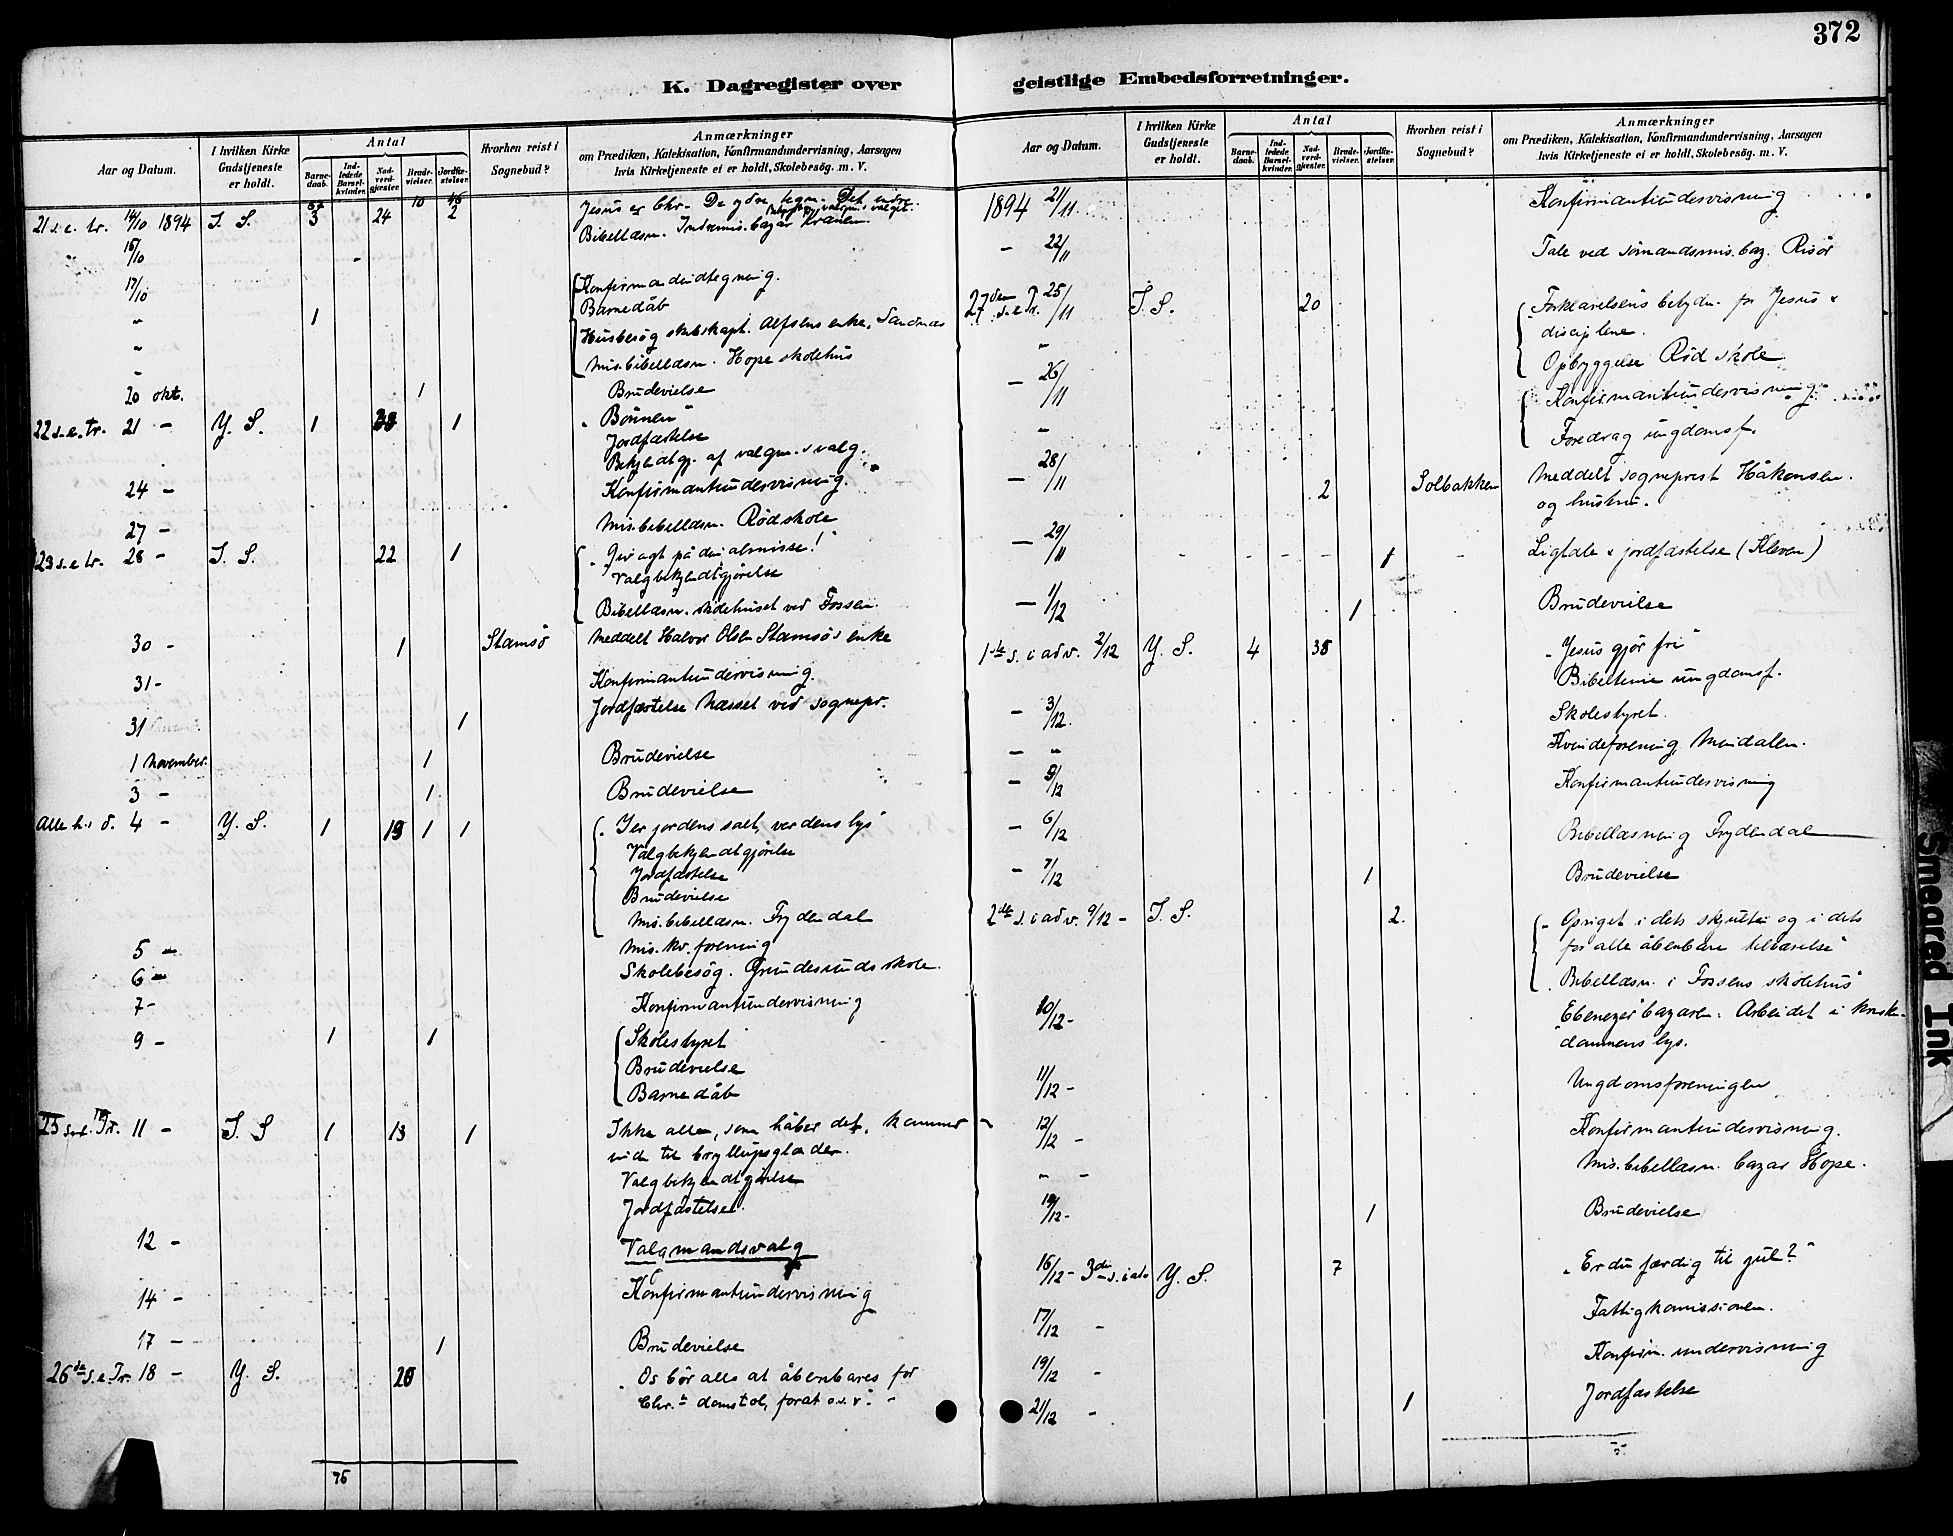 372
K. Dagregister over
Aar og Datum. I hvilken Kirke Gudstjeneste er holdt. Antal Hvorhen reist i Sognebud? Anmærkninger
Barnedaab. Indledede Barselkvinder. Nadverdgjester. Brudevielser. Jordfæstelser.
om Prædiken, Katekisation, Konfirmandundervisning, Aarsagen
hvis Kirketjeneste ei er holdt, Skolebesøg. m. V.
10
21 s. e. tr. 14/10 1894 I. S. 3 24 2 Jesus er Chr. De ydre tegn. Det indre
Bibellæsn. Indremis. bazar Kranen
15/10
17/10 Konfirmandindtegning.
" 1 Barnedåb
" Husbesøg skibskapt. Alfsens enke, Sandnæs
" Mis. bibellæsn. Hope skolehus
20 okt. 1 Brudevielse
22 s. e. tr. 21 - Y. S. 1 1 "Bønnen"
Jordfæstelse
Bekjendtgj. af valgm.s valg.
24 - Konfirmantundervisning.
27 - Mis. bibellæsn. Rød skole
23 s. e. tr. 28 - I. S. 22 1 "Giv agt på din almisse!"
Valgbekjendtgjørelse
Bibellæsn. skolehuset ved Fossen.
30 - 1 Stamsø Meddelt Halvor Olsen Stamsøs enke
31 - Konfirmantundervisning.
31 1 Jordfæstelse Næsset ved sognepr.
1 November. 1 Brudevielse
3 - 1 Brudevielse
Alle h. s d. 4 - Y. S. 1 19 1 1 "I er jordens salt, verdens lys"
Valgbekjendtgjørelse
Jordfæstelse
Brudevielse
Mis. bibellæsn. Frydendal
5 - Mis. kv. forening
6 - Skolebesøg. Grundesunds skole.
7 - Konfirmantundervisning
9 - 1 1 Skolestyret
Brudevielse
Barnedåb
25 s. e. Tr. 11 - I. S 1 13 1 Ikke alle, som håber det, kommer
ind til bryllupsglæden.
Valgbekjendtgjørelse
Jordfæstelse.
12 - Valgmandsvalg
14 - Konfirmantundervisning
17 - 1 Brudevielse
26de s. e. Tr. 18 - Y. S. 20 "Os bør alle at åbenbares for
Chr.s domstol, forat o.s.v." -
75
geistlige Embedsforretninger.
Aar og Datum. I hvilken Kirke Gudstjeneste er holdt. Antal Hvorhen reist i Sognebud? Anmærkninger
Barnedaab. Indledede Barselkvinder. Nadverdgjester. Brudevielser. Jordfæstelser.
om Prædiken, Katekisation, Konfirmandundervisning, Aarsagen
hvis Kirketjeneste ei er holdt, Skolebesøg. m. V.
1894 21/11 Konfirmantundervisning
- 22/11 Tale ved sømandsmis. baz. Risør
27den s. e. Tr. 25/11 I. S. 20 Forklarelsens betydn. for Jesus &
disciplene.
" Opbyggelse Rød skole
- 26/11 Konfirmantundervisning
" Foredrag ungdomsf.
- 28/11 2 Solbakken Meddelt sogneprest Håkonsen
og hustru.
- 29/11 1 Ligtale & jordfæstelse (Kleven)
- 1/12 1 Brudevielse
1ste s. i adv. 2/12 Y. S. 4 38 "Jesus gjør fri"
Bibeltime ungdomsf.
- 3/12. Skolestyret.
- " Kvindeforening Mindalen.
- 5/12 Konfirmantundervisning
- 6/12 Bibellæsning Frydendal
- 7/12 1 Brudevielse
2den s. i adv. 9/12 - I. S. 2. "Opriget i dets skjulte og i dets
for alle åbenbare tilværelse"
Bibellæsn. i Fossens skolehus
10/12 - "Ebenezer" bazaren: Arbeidet i kristen-
dommens lys.
11/12 - Ungdomsforeningen
12/12 - Konfirmantundervisning.
" - Mis. bibellæsn. bazar Hope.
14/12 - 1 Brudevielse
16/12 - 3die s. i adv Y. S. 7 "Er du færdig til jul?"
17/12 - Fattigkomissionen.
19/12 - Konfirm. undervisning
21/12 - 1 Jordfæstelse
Smeared Ink